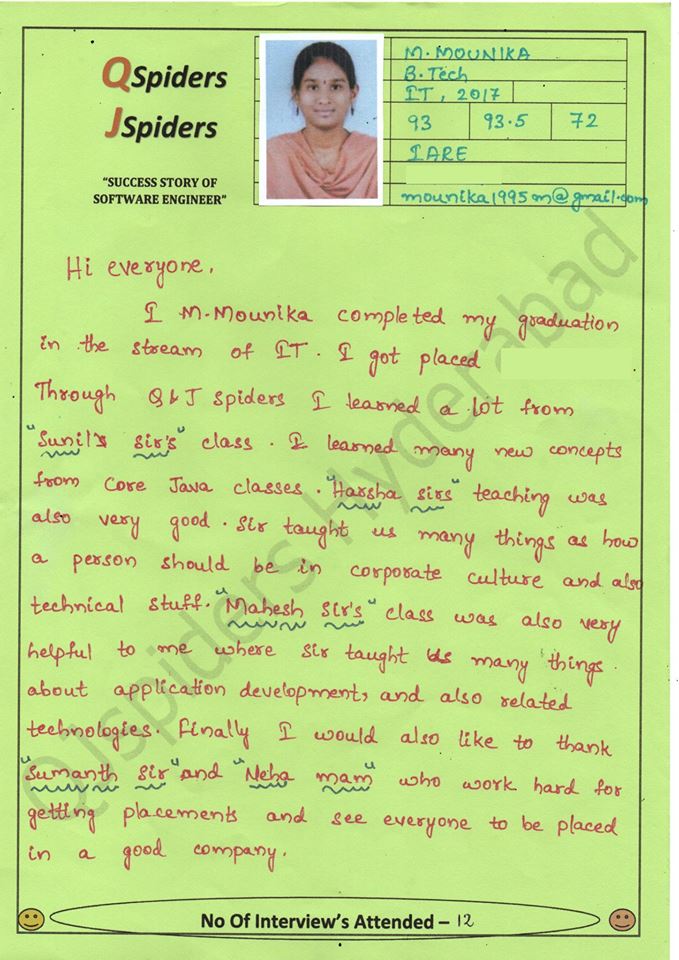 QSpiders
JSpiders
"SUCCESS STORY OF
SOFTWARE ENGINEER"
M. MOUNIKA
B.Tech
IT, 2017
93 93.5 72
IARE
mounika1995m@gmail.com
Hi everyone,
I M.Mounika completed my graduation
in the stream of IT. I got placed
Through Q & J spiders I learned a lot from
"Sunil's sir's" class. I learned many new concepts
from Core Java classes. "Harsha sirs" teaching was
also very good. Sir taught us many things as how
a person should be in corporate culture and also
technical stuff. "Mahesh Sir's" class was also very
helpful to me where sir taught us many things
about application development, and also related
technologies. Finally I would also like to thank
"Sumanth Sir" and "Neha mam" who work hard for
getting placements and see everyone to be placed
in a good company.
No Of Interview's Attended – 12
QJspiders Hyderabad